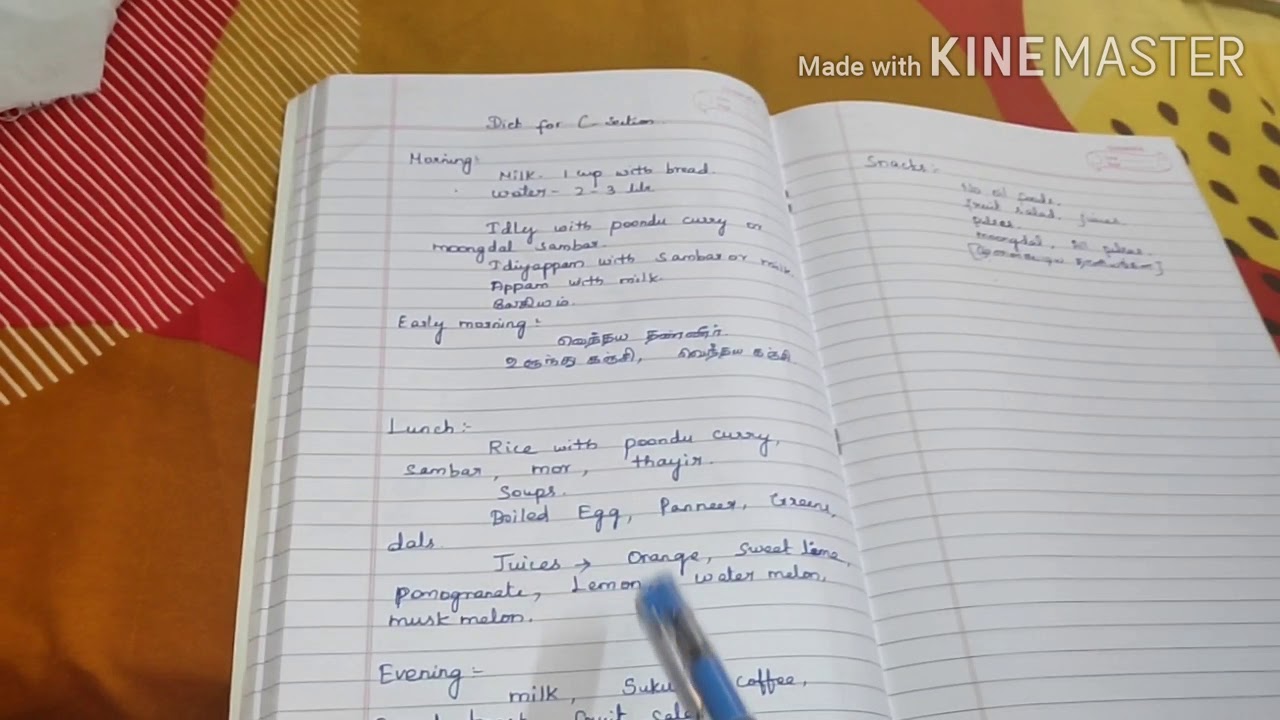 Made with KINEMASTER
Diet for C-Section.
Morning:
Milk. 1 cup with bread.
Water - 2 - 3
Idly with poondu curry or
moongdal sambar.
Idiyappam with sambar or milk.
Appam with milk.
Early morning:
வெந்தய தண்ணீர்.
உளுந்து கஞ்சி, வெந்தய கஞ்சி
Lunch:-
Rice with poondu curry,
sambar, mor, thayir.
Soups.
Boiled Egg, Panneer, Greens,
dals
Juices → Orange, Sweet lime,
pomogranate, Lemon, water melon,
musk melon.
Evening:-
milk, Suku coffee,
fruit
Snacks:-
No oil foods.
fruit salad, juices
pulses.
moongdal, pulses.